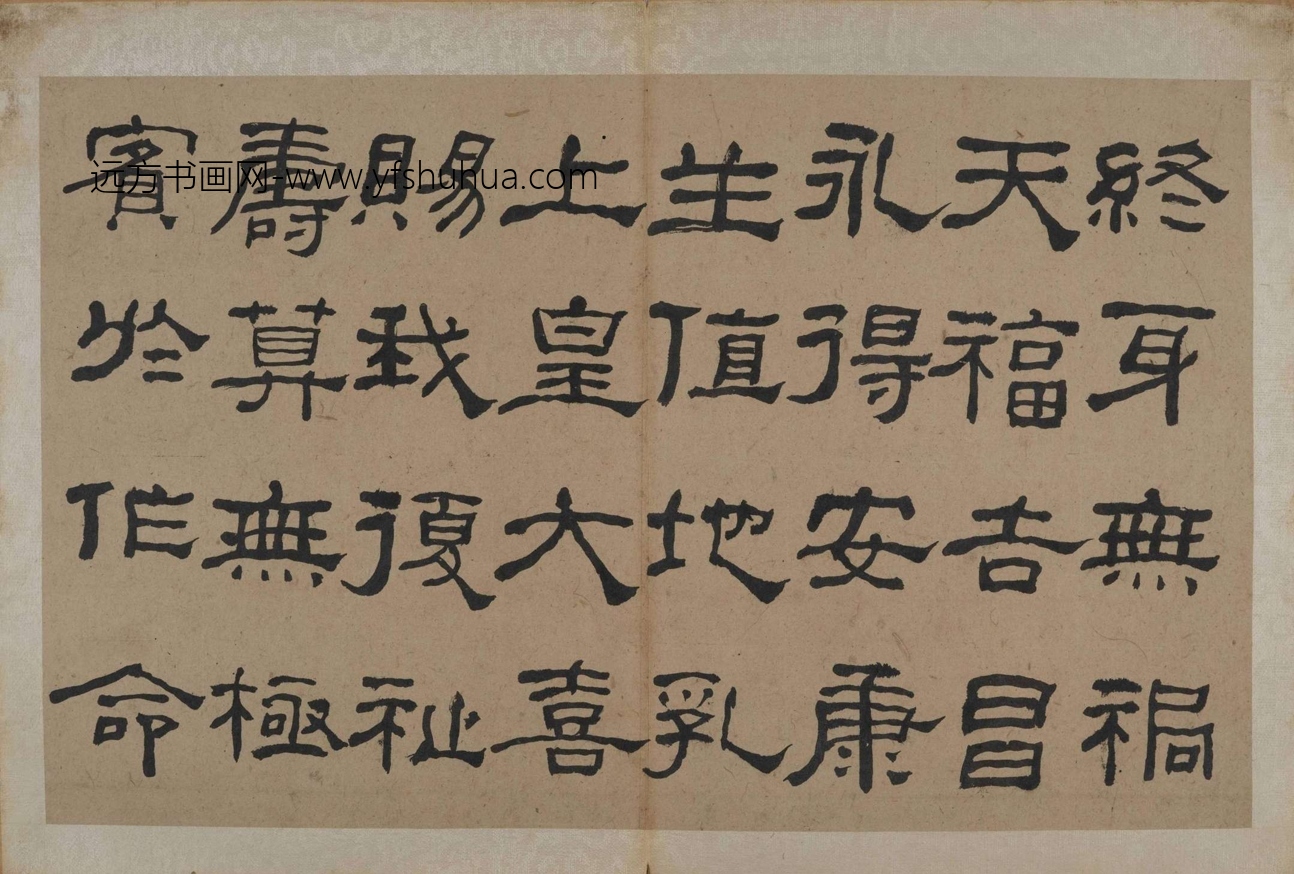 終身無禍
天福吉昌
永得安康
生值地乳
上皇大喜
賜我復祉
壽算無極
賓於作命
远方书画网-www.yfshuhua.com